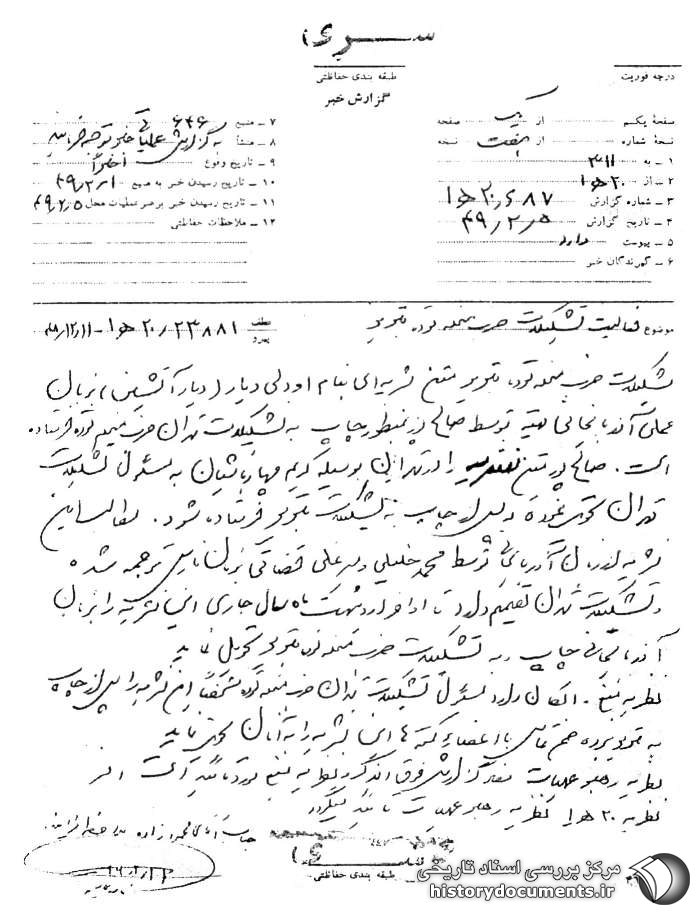 سری
طبقه بندی حفاظتی
درجه فوریت
گزارش خبر
صفحه یکم از یک صفحه
نسخه شماره از هفت نسخه
۱ ـ به ۳۱۱
۲ ـ از ۲۰ ه‍ ۱
۳ ـ شماره گزارش ۲۰/۶۸۷ ه‍ ۱
۴ ـ تاریخ گزارش ۴۹/۲/۵
۵ ـ پیوست دارد
۶ ـ گیرندگان خبر
۷ ـ منبع ۶۴۶
۸ ـ منشأ به گزارش عملیات توجه فرمایید
۹ ـ تاریخ وقوع اخیراً
۱۰ ـ تاریخ رسیدن خبر به منبع ۴۹/۲/۱
۱۱ ـ تاریخ رسیدن خبر برهبر عملیات محل ۴۹/۲/۵
۱۲ ـ ملاحظات حفاظتی
موضوع فعالیت تشکیلات حزب منحله توده تبریز
عطف
پیرو ۲۰/۲۳۸۸۱ ه‍ ۱ ـ ۴۸/۱۲/۱۱
تشکیلات حزب منحله توده تبریز متن نشریه‌ای بنام اودلی دیار (دیار آتشین) بزبان
محلی آذربایجانی تهیه توسط صالح پور بمنظور چاپ به تشکیلات تهران حزب منحله توده فرستاده
است. صالح پور متن نشریه را در تهران بوسیله کریم مهاباشیان به مسئول تشکیلات
تهران تحویل نموده و پس از چاپ به تشکیلات تبریز فرستاده شود. مطالب این
نشریه از زبان آذربایجانی توسط محمد خلیلی و علی قضاتی بزبان فارسی ترجمه شده
و تشکیلات تهران تصمیم دارد تا اواخر اردیبهشت ماه سال جاری این نشریه را بزبان
آذربایجانی چاپ و به تشکیلات حزب منحله توده تبریز تحویل نماید
نظریه منبع. امکان دارد مسئول تشکیلات تهران حزب منحله توده شخصاً این نشریه را پس از چاپ
به تبریز برده ضمن تماس با اعضاء کمیته‌ها این نشریه را به آنان تحویل نماید
نظریه رهبر عملیات مفاد گزارش فوق الذکر و نظریه منبع مورد تائید است
نظریه ۲۰ ه‍ ۱ نظریه رهبر عملیات تائید میگردد
جناب آقای محمودزاده ملاحظه فرمایند
طبقه بندی حفاظتی
مرکز بررسی اسناد تاریخی
historydocuments.ir